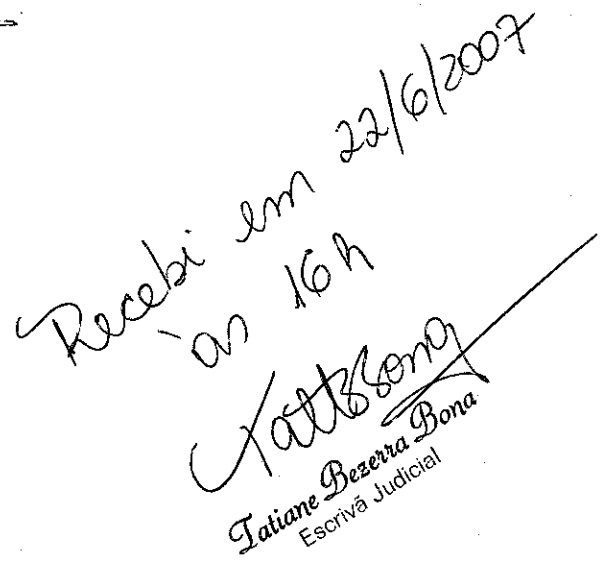 Recebi em 22/6/2007
às 16h
Tatiane Bezerra Bona
Escrivã Judicial